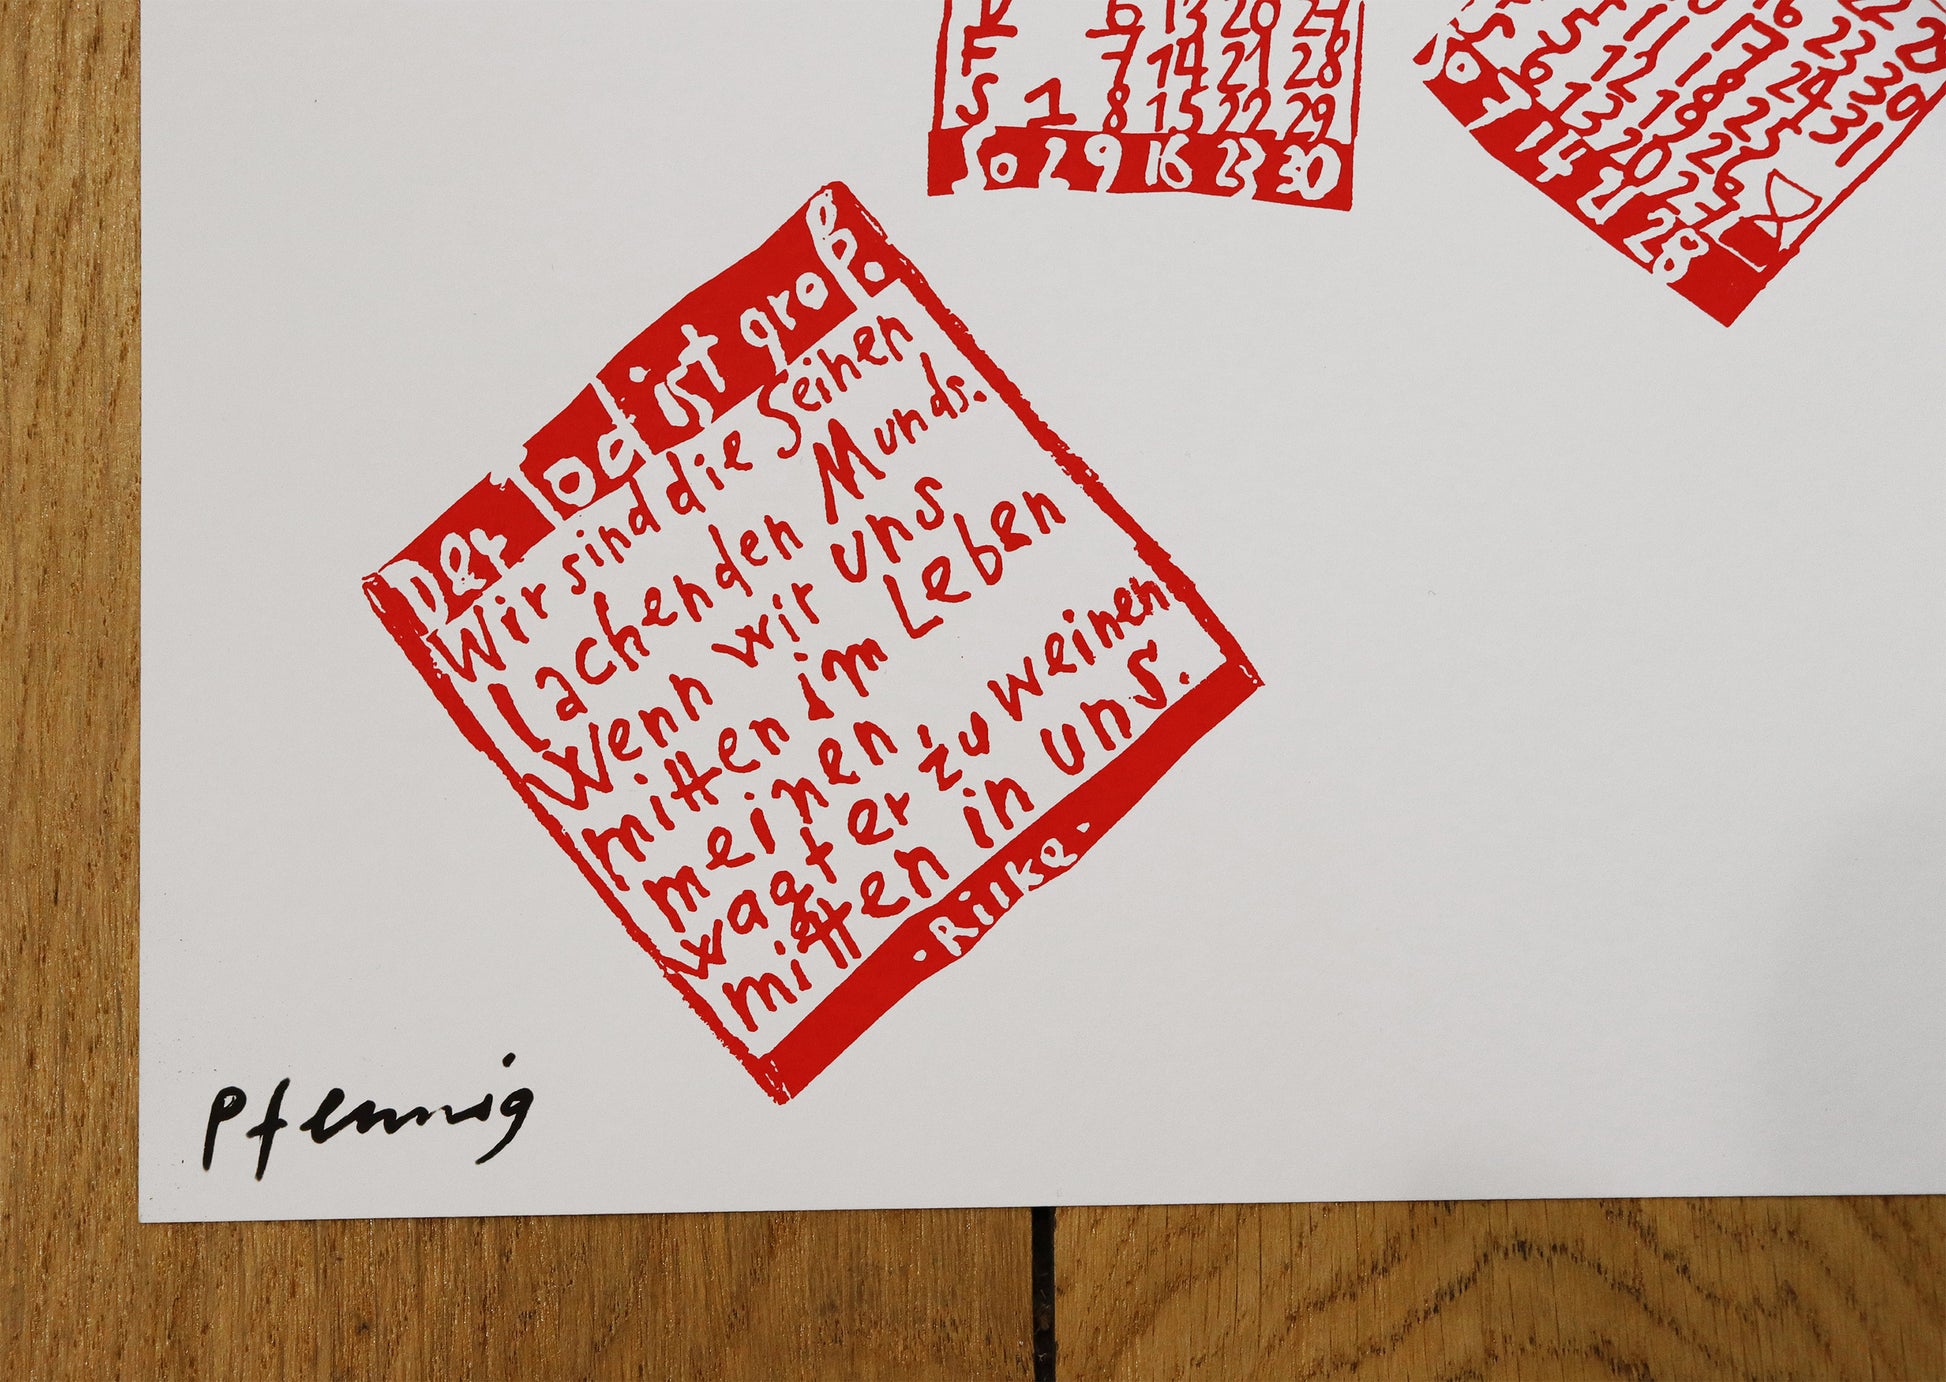 6 13 20 27
T 7 14 21 28
S 1 8 15 22 29
So 2 9 16 23 30
22 29
16 23 30
17 24 31
11 18 25
5 12 19 26
S 6 13 20 27
So 7 14 21 28
Der Tod ist groß.
Wir sind die Seinen
lachenden Munds.
Wenn wir uns
mitten im Leben
meinen,
wagt er zu weinen
mitten in uns.
· Rilke ·
Pfennig